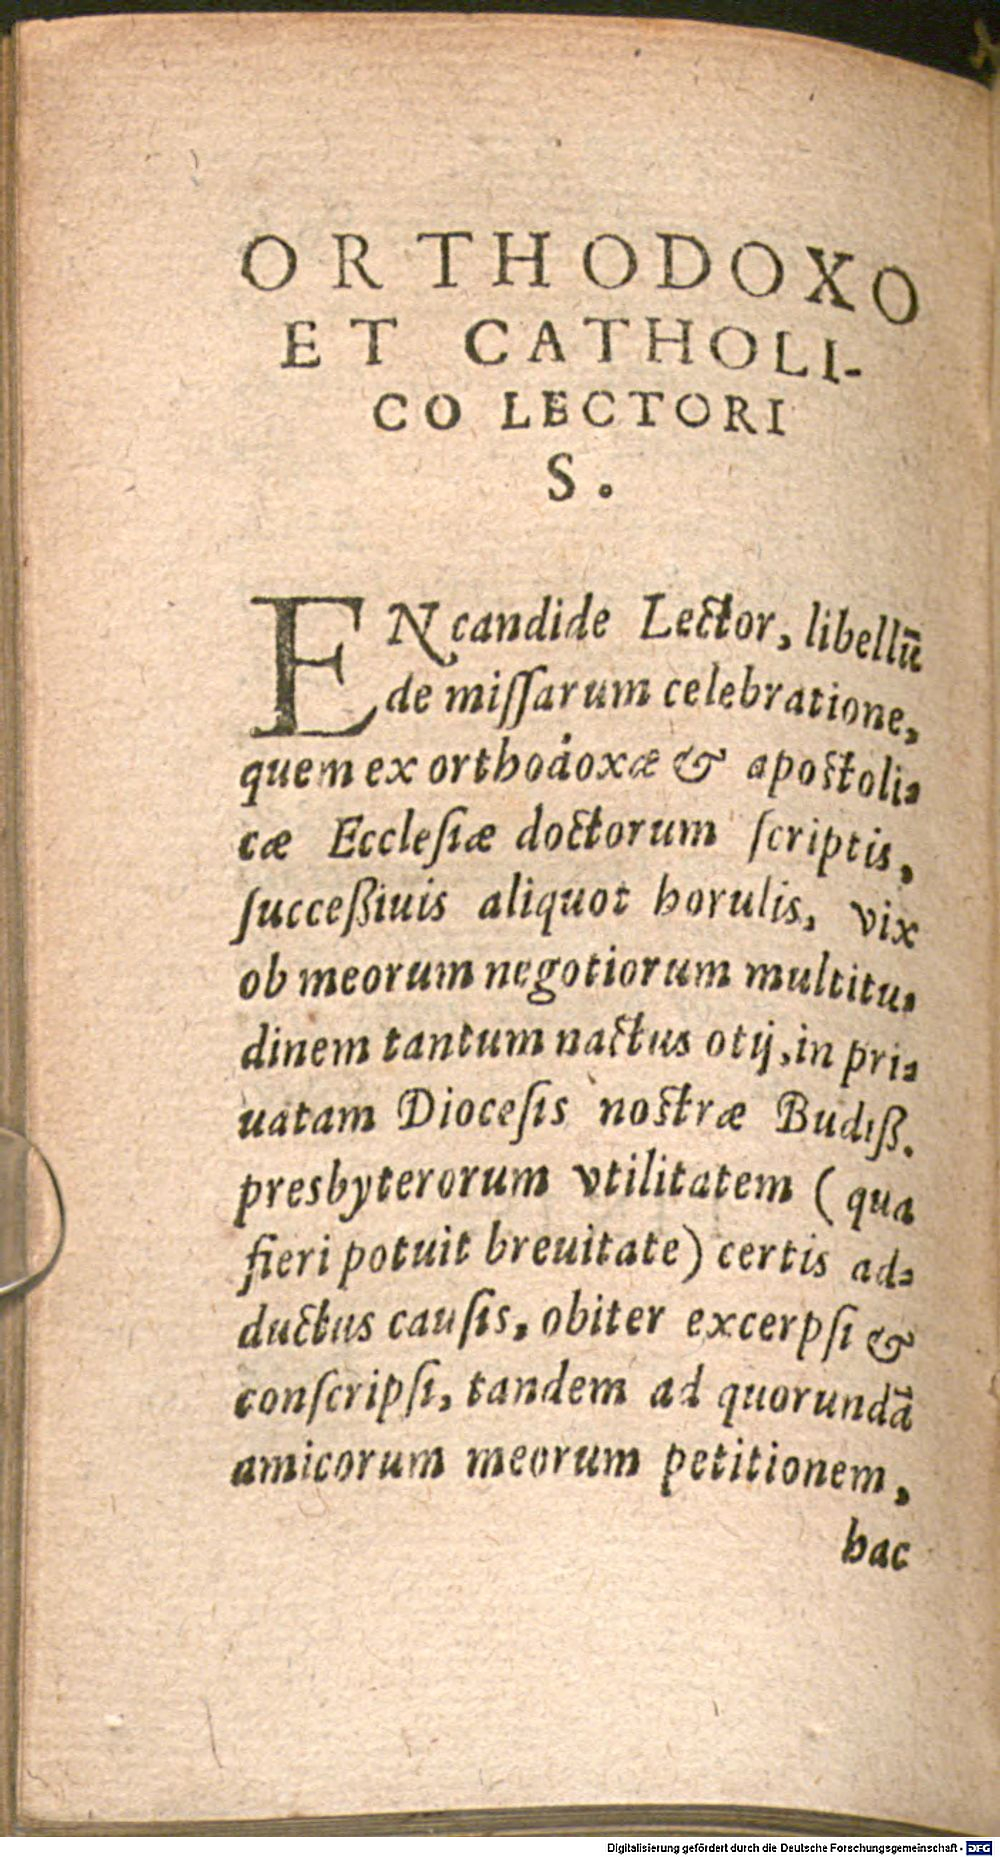 ORTHODOXO
ET CATHOLI-
CO LECTORI
S.
EN candide Lector, libellū
de miſſarum celebratione,
quem ex orthodoxæ & apostoli-
cæ Eccleſiæ doctorum ſcriptis,
ſucceßiuis aliquot horulis, vix
ob meorum negotiorum multitu-
dinem tantum nactus otij, in pri-
uatam Dioceſis nostræ Budiß.
presbyterorum vtilitatem (qua
fieri potuit breuitate) certis ad-
ductus cauſis, obiter excerpſi &
conſcripſi, tandem ad quorundā
amicorum meorum petitionem,
hac
Digitalisierung gefördert durch die Deutsche Forschungsgemeinschaft - DFG